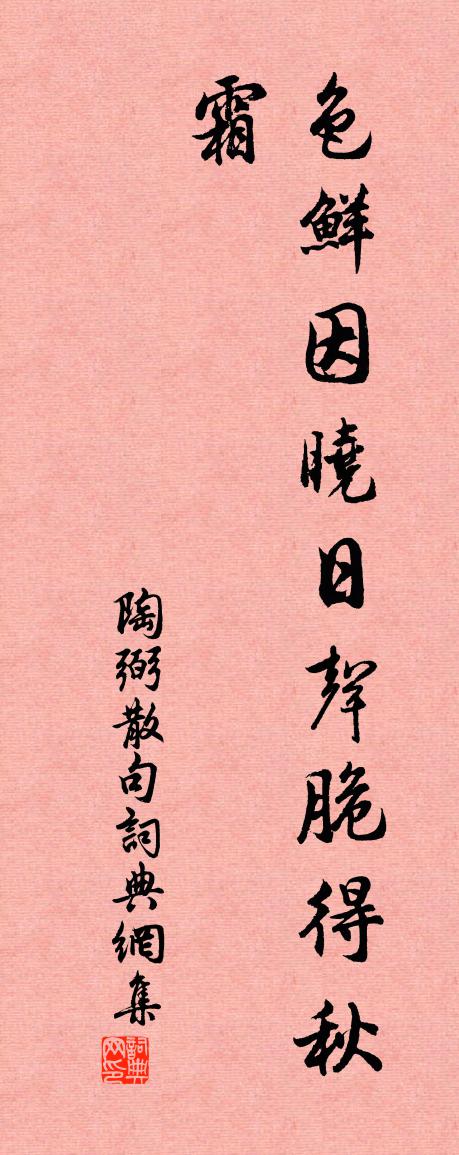 色鮮因曉日聲脆得秋
霜
陶弼散句詞典網集
詞典
网印